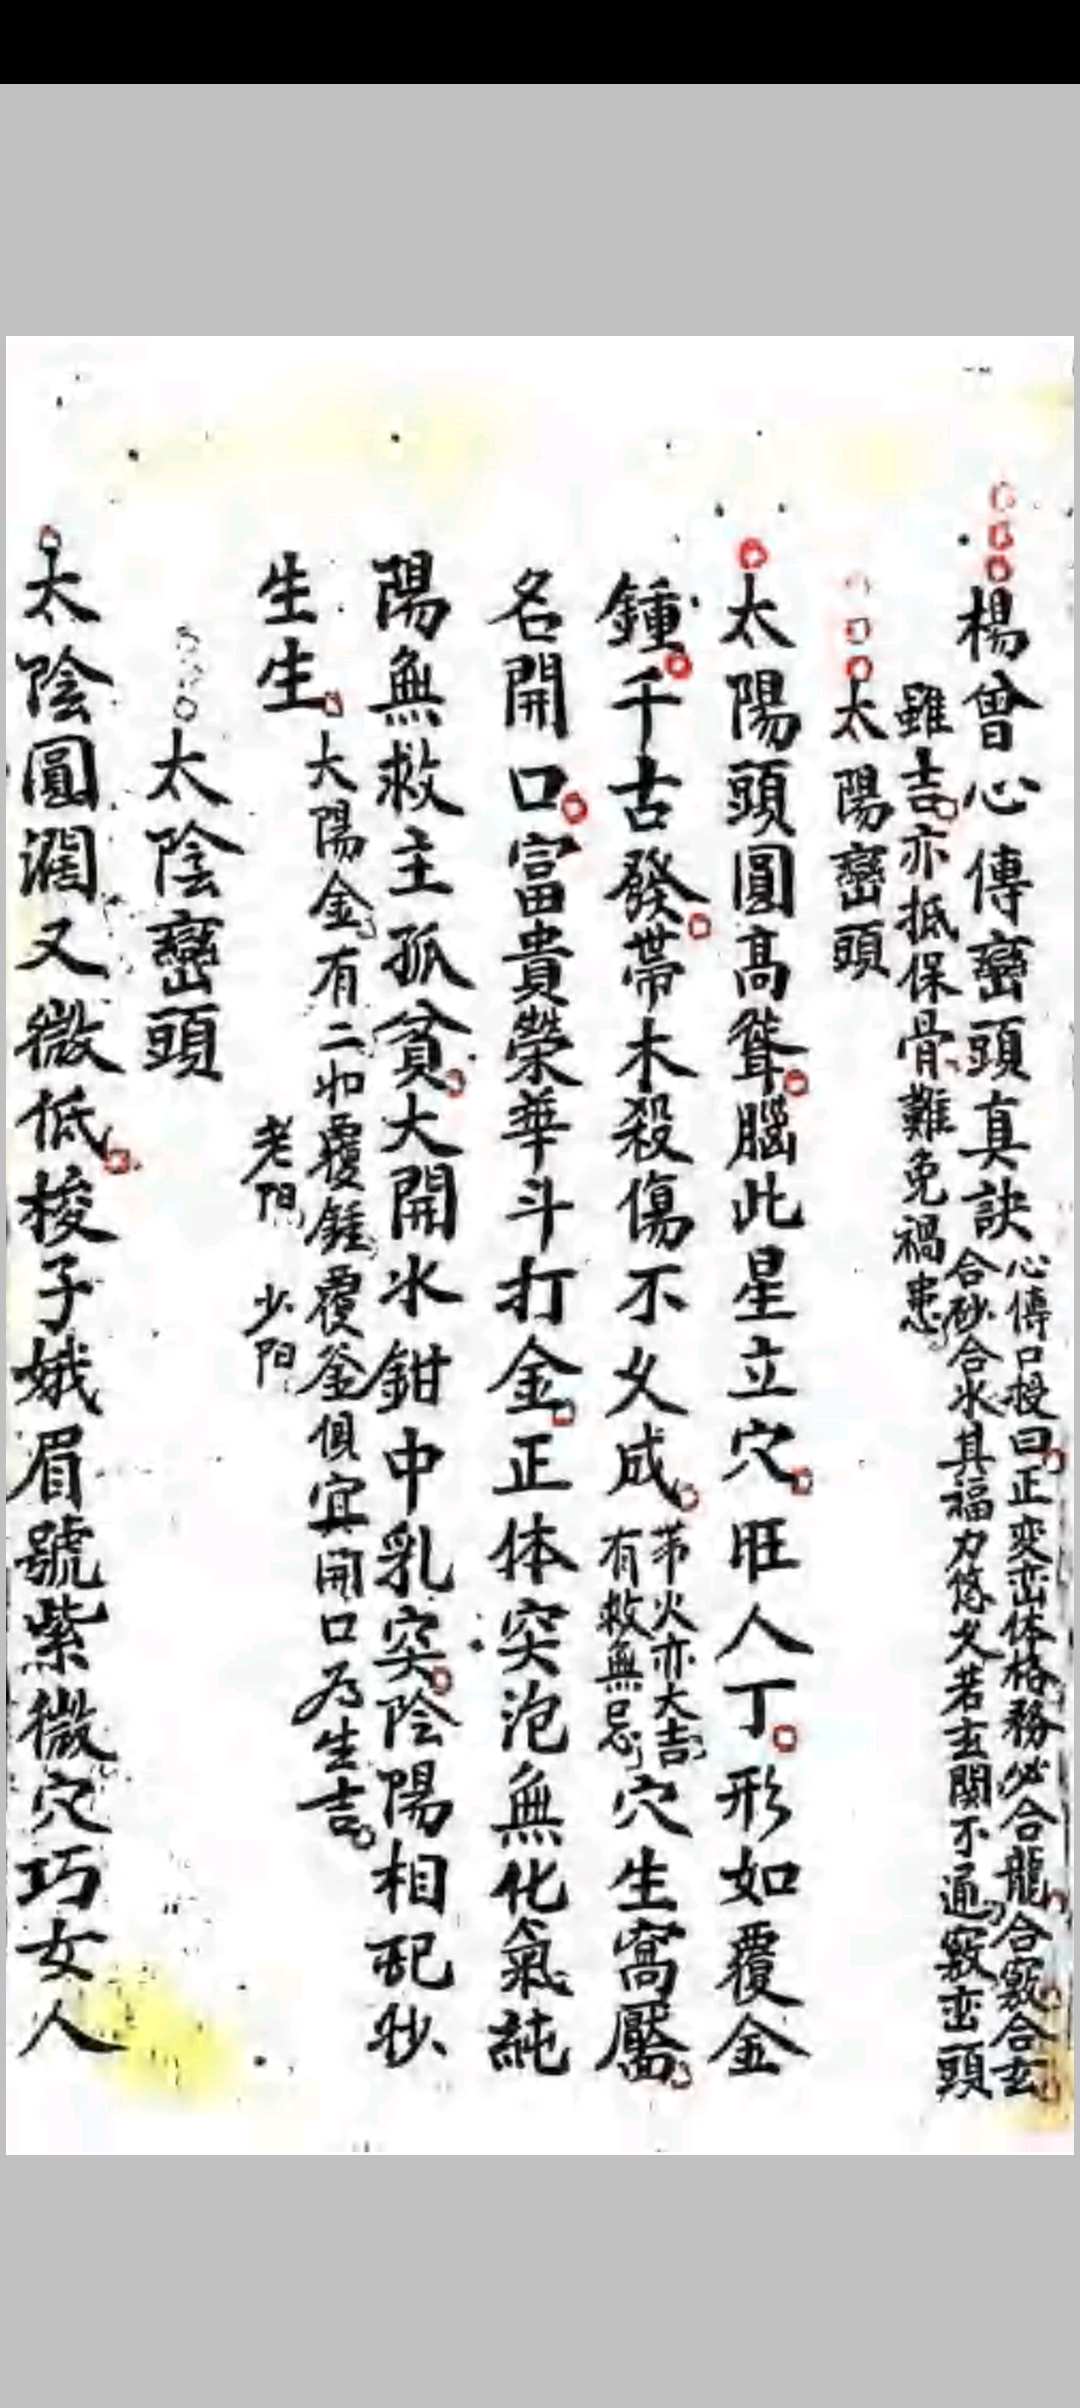 楊曾心傳巒頭真訣
心傳口授曰正变峦体格務必合龍合竅合玄
合砂合水其福力悠久若玄關不通竅峦頭
雖吉亦抵保骨難免禍患
太陽巒頭
太陽頭圓高聳腦此星立穴旺人丁形如覆金
鍾千古發帯木殺傷不义成
帯火亦大吉
有救無忌
穴生窩靨
名開口富貴榮華斗打金正体突泡無化氣純
陽無救主孤貧大開水鉗中乳突陰陽相配妙
生生
大陽金有二如覆鍾覆釜俱宜開口为生吉
老阳 少阳
太陰巒頭
太陰圓濶又微低梭子娥眉號紫微穴巧女人